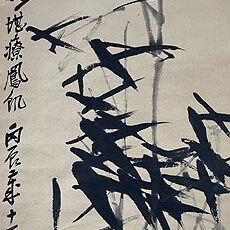 堪療鳳飢丙辰年十